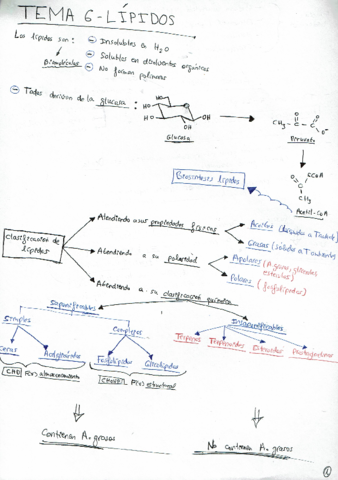 TEMA 6-LÍPIDOS
Los lípidos son:
Biomoléculas
Insolubles en H2O
Solubles en disolventes orgánicos
No forman polímeros
Todos derivan de la glucosa:
HO
HO
HO
OH
OH
Glucosa
CH3
O
O
O-
Piruvato
SCoA
O
CH3
Acetil-CoA
Biosíntesis lípidos
Clasificación de lípidos
Atendiendo a sus propiedades físicas
Aceites (líquidos a Tambiente)
Grasas (sólidos a Tambiente)
Atendiendo a su polaridad
Apolares (A. graso, glicéridos
esteroles)
Polares (fosfolípidos)
Atendiendo a su clasificación química
Saponificables
Insaponificables
Simples
Complejos
Ceras
Acilglicéridos
Fosfolípidos
Glicolípidos
Terpenos
Esteroides
Prostaglandinas
[CHO] (Para) almacenamiento
(Para) estructural
Contienen A. grasos
No contienen A. grasos